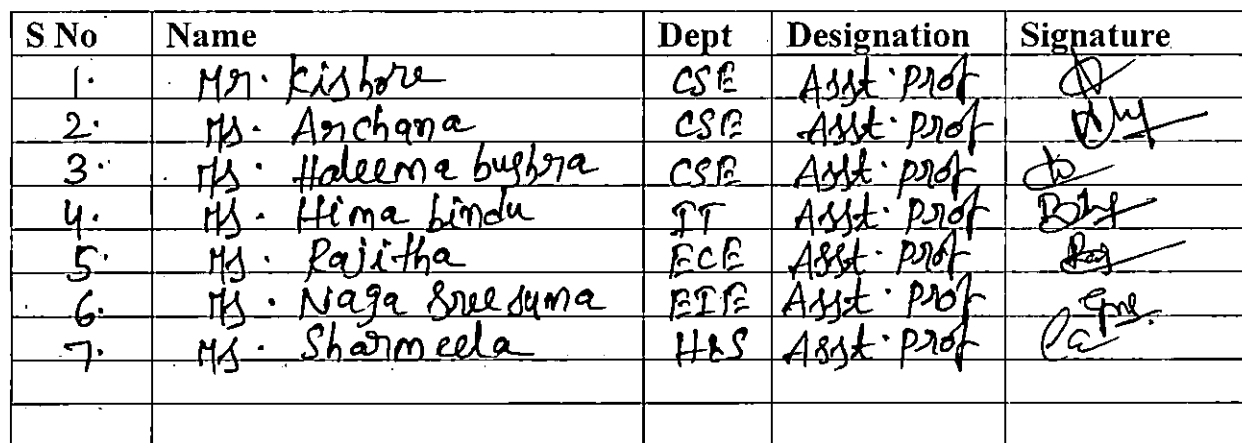 S No Name Dept Designation Signature
1. Mr. Kishore CSE Asst. prof
2. Ms. Archana CSE Asst. prof
3. Ms. Haleema bushra CSE Asst. prof
4. Ms. Hima bindu IT Asst. prof
5. Ms. Rajitha ECE Asst. prof
6. Ms. Naga Sree suma EIE Asst. prof
7. Ms. Sharmeela H&S Asst. prof